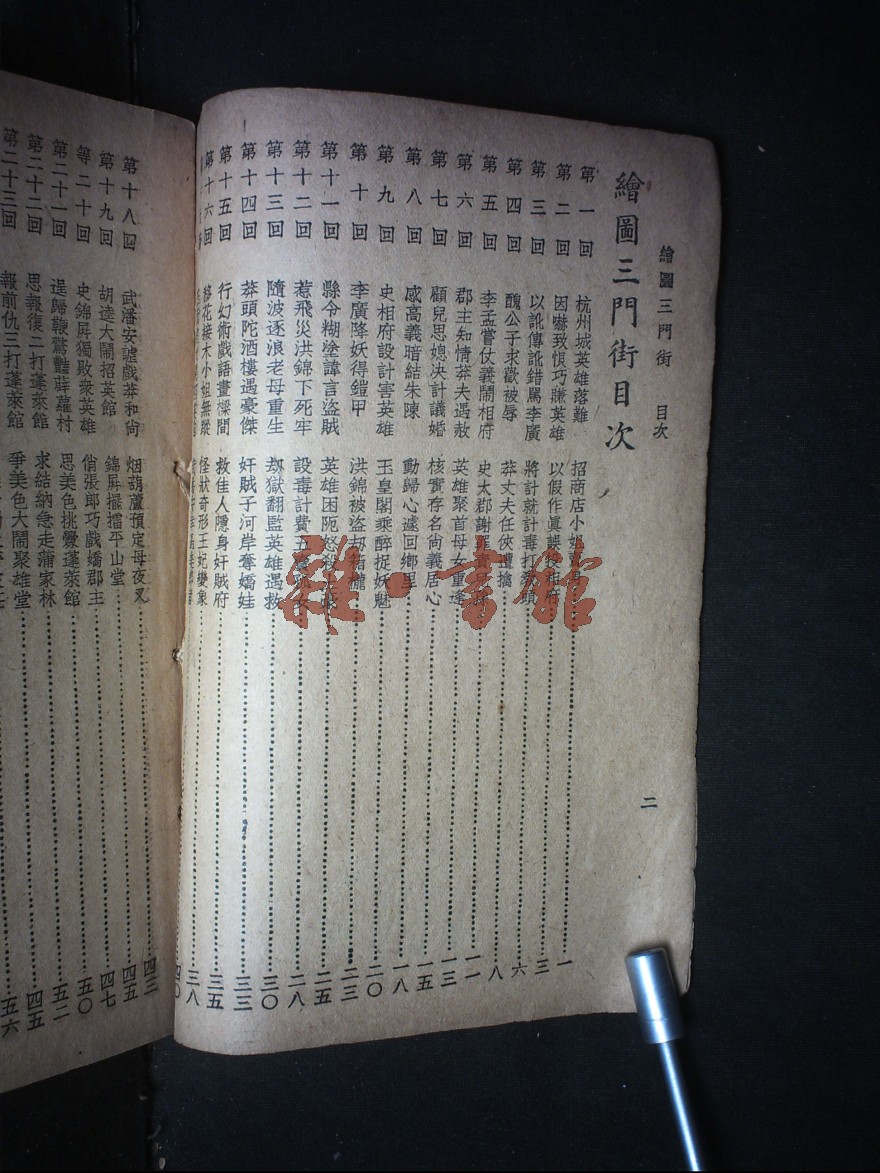 繪圖三門街 目次
二
繪圖三門街目次
第一回 杭州城英雄落難 招商店小姐賣身 一
第二回 因嚇致恨巧賺英雄 以假作眞誤投相府 三
第三回 以訛傳訛錯罵李廣 將計就計毒打教頭 六
第四回 醜公子求歡被辱 莽丈夫任俠遭擒 八
第五回 李孟嘗仗義鬧相府 史太郡謝罪賣 一一
第六回 郡主知情莽夫遇赦 英雄聚首母女重逢 一三
第七回 顧兒思媳決計議婚 核實存名尚義居心 一五
第八回 感高義暗結朱陳 動歸心遽回鄉里 一八
第九回 史相府設計害英雄 玉皇閣乘醉捉妖魅 二〇
第十回 李廣降妖得鎧甲 洪錦被盜刧箱籠 二三
第十一回 縣令糊塗諱言盜賊 英雄困阨怒殺 二五
第十二回 惹飛災洪錦下死牢 設毒計費五 二八
第十三回 隨波逐浪老母重生 刧獄翻監英雄遇救 三〇
第十四回 莽頭陀酒樓遇豪傑 奸賊子河岸奪嬌娃 三三
第十五回 行幻術戲語畫樑間 救佳人隱身奸賊府 三五
第十六回 移花接木小姐無蹤 怪狀奇形王妃變象 三八
四〇
第十八回 武潘安謔戲莽和尚 烟葫蘆預定母夜叉 四三
第十九回 胡逵大鬧招英館 錦屏擺擂平山堂 四五
等二十回 史錦屏獨敗衆英雄 俏張郎巧戲嬌郡主 四七
第二十一回 逞歸鞭驚豔薜蘿村 思美色挑釁蓬萊館 五〇
第二十二回 思報復二打蓬萊館 求結納急走蒲家林 五二
第二十三回 報前仇三打蓬萊館 爭美色大鬧聚雄堂 四五
五六
雜·書館